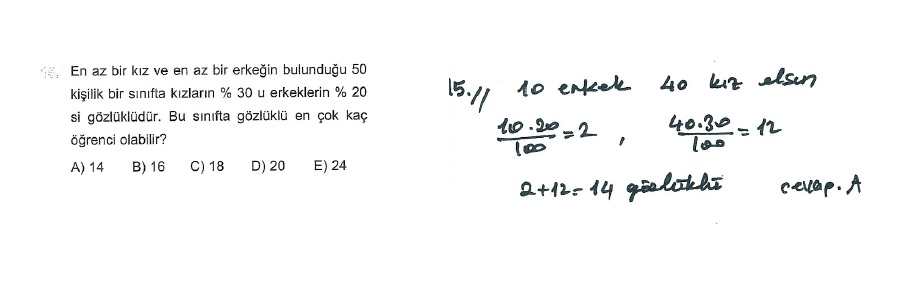 15. En az bir kız ve en az bir erkeğin bulunduğu 50
kişilik bir sınıfta kızların % 30 u erkeklerin % 20
si gözlüklüdür. Bu sınıfta gözlüklü en çok kaç
öğrenci olabilir?
A) 14 B) 16 C) 18 D) 20 E) 24
15.// 10 erkek 40 kız olsun
10.20/100 = 2 , 40.30/100 = 12
2+12=14 gözlüklü cevap. A